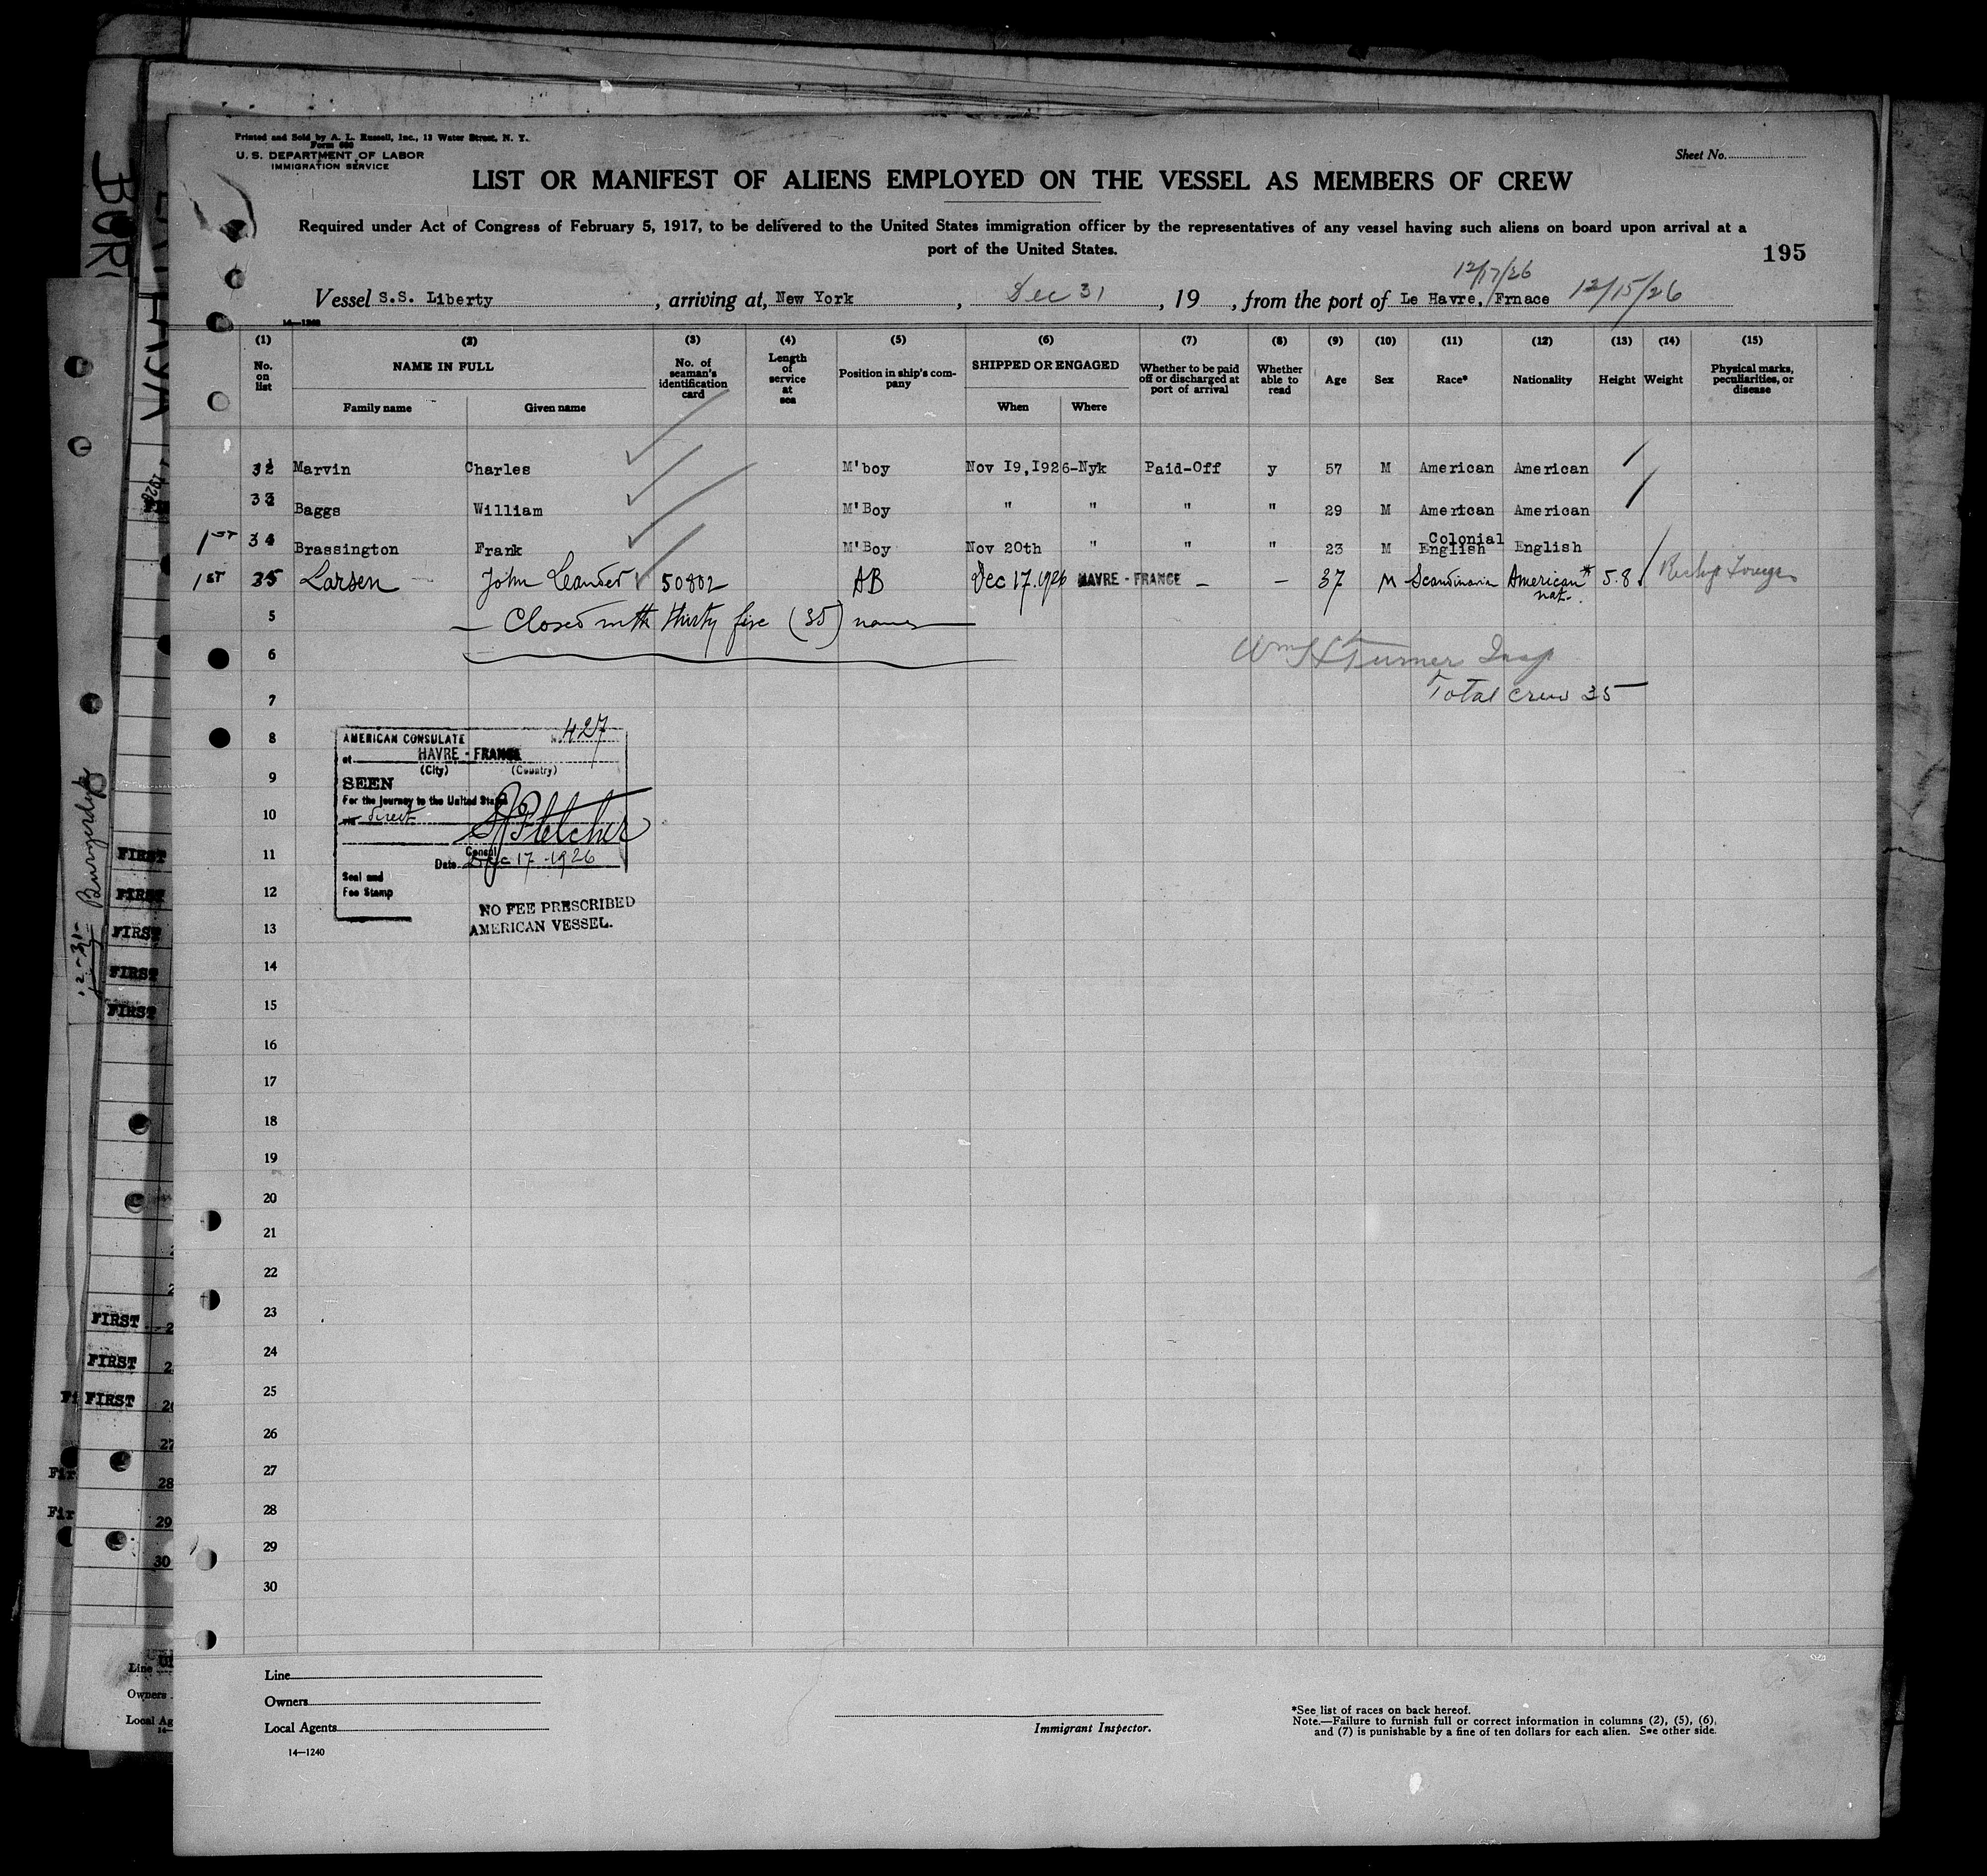 Printed and Sold by A. L. Russell, Inc., 13 Water Street, N. Y.
Form 680
U. S. DEPARTMENT OF LABOR
IMMIGRATION SERVICE
Sheet No.
LIST OR MANIFEST OF ALIENS EMPLOYED ON THE VESSEL AS MEMBERS OF CREW
Required under Act of Congress of February 5, 1917, to be delivered to the United States immigration officer by the representatives of any vessel having such aliens on board upon arrival at a
port of the United States.
195
12/17/26
Vessel S.S. Liberty, arriving at, New York, Dec 31, 19 , from the port of Le Havre, Frnace 12/15/26
14—1240
(1) (2) (3) (4) (5) (6) (7) (8) (9) (10) (11) (12) (13) (14) (15)
No. on list NAME IN FULL No. of seaman's identification card Length of service at sea Position in ship's company SHIPPED OR ENGAGED Whether to be paid off or discharged at port of arrival Whether able to read Age Sex Race* Nationality Height Weight Physical marks, peculiarities, or disease
Family name Given name When Where
32 Marvin Charles M'boy Nov I9,I926-Nyk Paid-Off y 57 M American American
33 Baggs William M'Boy " " " " 29 M American American
1st 34 Brassington Frank M'Boy Nov 20th " " " 23 M Colonial English English
1st 35 Larsen John Leander 50802 AB Dec 17.1926 HAVRE - FRANCE — — 37 M Scandinavia American* nat. 5.8
5 — Closed with thirty five (35) names —
6 Wm H Turner Insp
7 Total crew 35
8
9
10
11
12
13
14
15
16
17
18
19
20
21
22
23
24
25
26
27
28
29
30
AMERICAN CONSULATE No. 427
at HAVRE - FRANCE
(City) (Country)
SEEN
For the journey to the United States
via direct
Fletcher
Consul
Date Dec 17 - 1926
Seal and
Fee Stamp
NO FEE PRESCRIBED
AMERICAN VESSEL.
Line
Owners
Local Agents
14—1240
Immigrant Inspector.
*See list of races on back hereof.
Note.—Failure to furnish full or correct information in columns (2), (5), (6),
and (7) is punishable by a fine of ten dollars for each alien. See other side.
FIRST
FIRST
FIRST
FIRST
FIRST
FIRST
FIRST
FIRST
27
28
29
30
Line
Owners
Local Ag